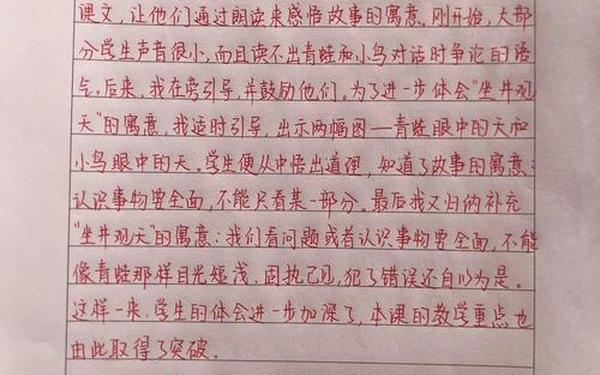 课文，让他们通过朗读来感悟故事的寓意。刚开始，大部
分学生声音很小，而且读不出青蛙和小鸟对话时争论的语
气。后来，我在旁引导，并鼓励他们。为了进一步体会“坐井观
天”的寓意，我适时引导，出示两幅图——青蛙眼中的天和
小鸟眼中的天。学生便从中悟出道理，知道了故事的寓意：
认识事物要全面，不能只看某一部分。最后我又归纳补充
“坐井观天”的寓意：我们看问题或者认识事物要全面，不能
像青蛙那样目光短浅、固执己见，犯了错误还自以为是。
这样一来，学生的体会进一步加深了，本课的教学重点也
由此取得了突破。